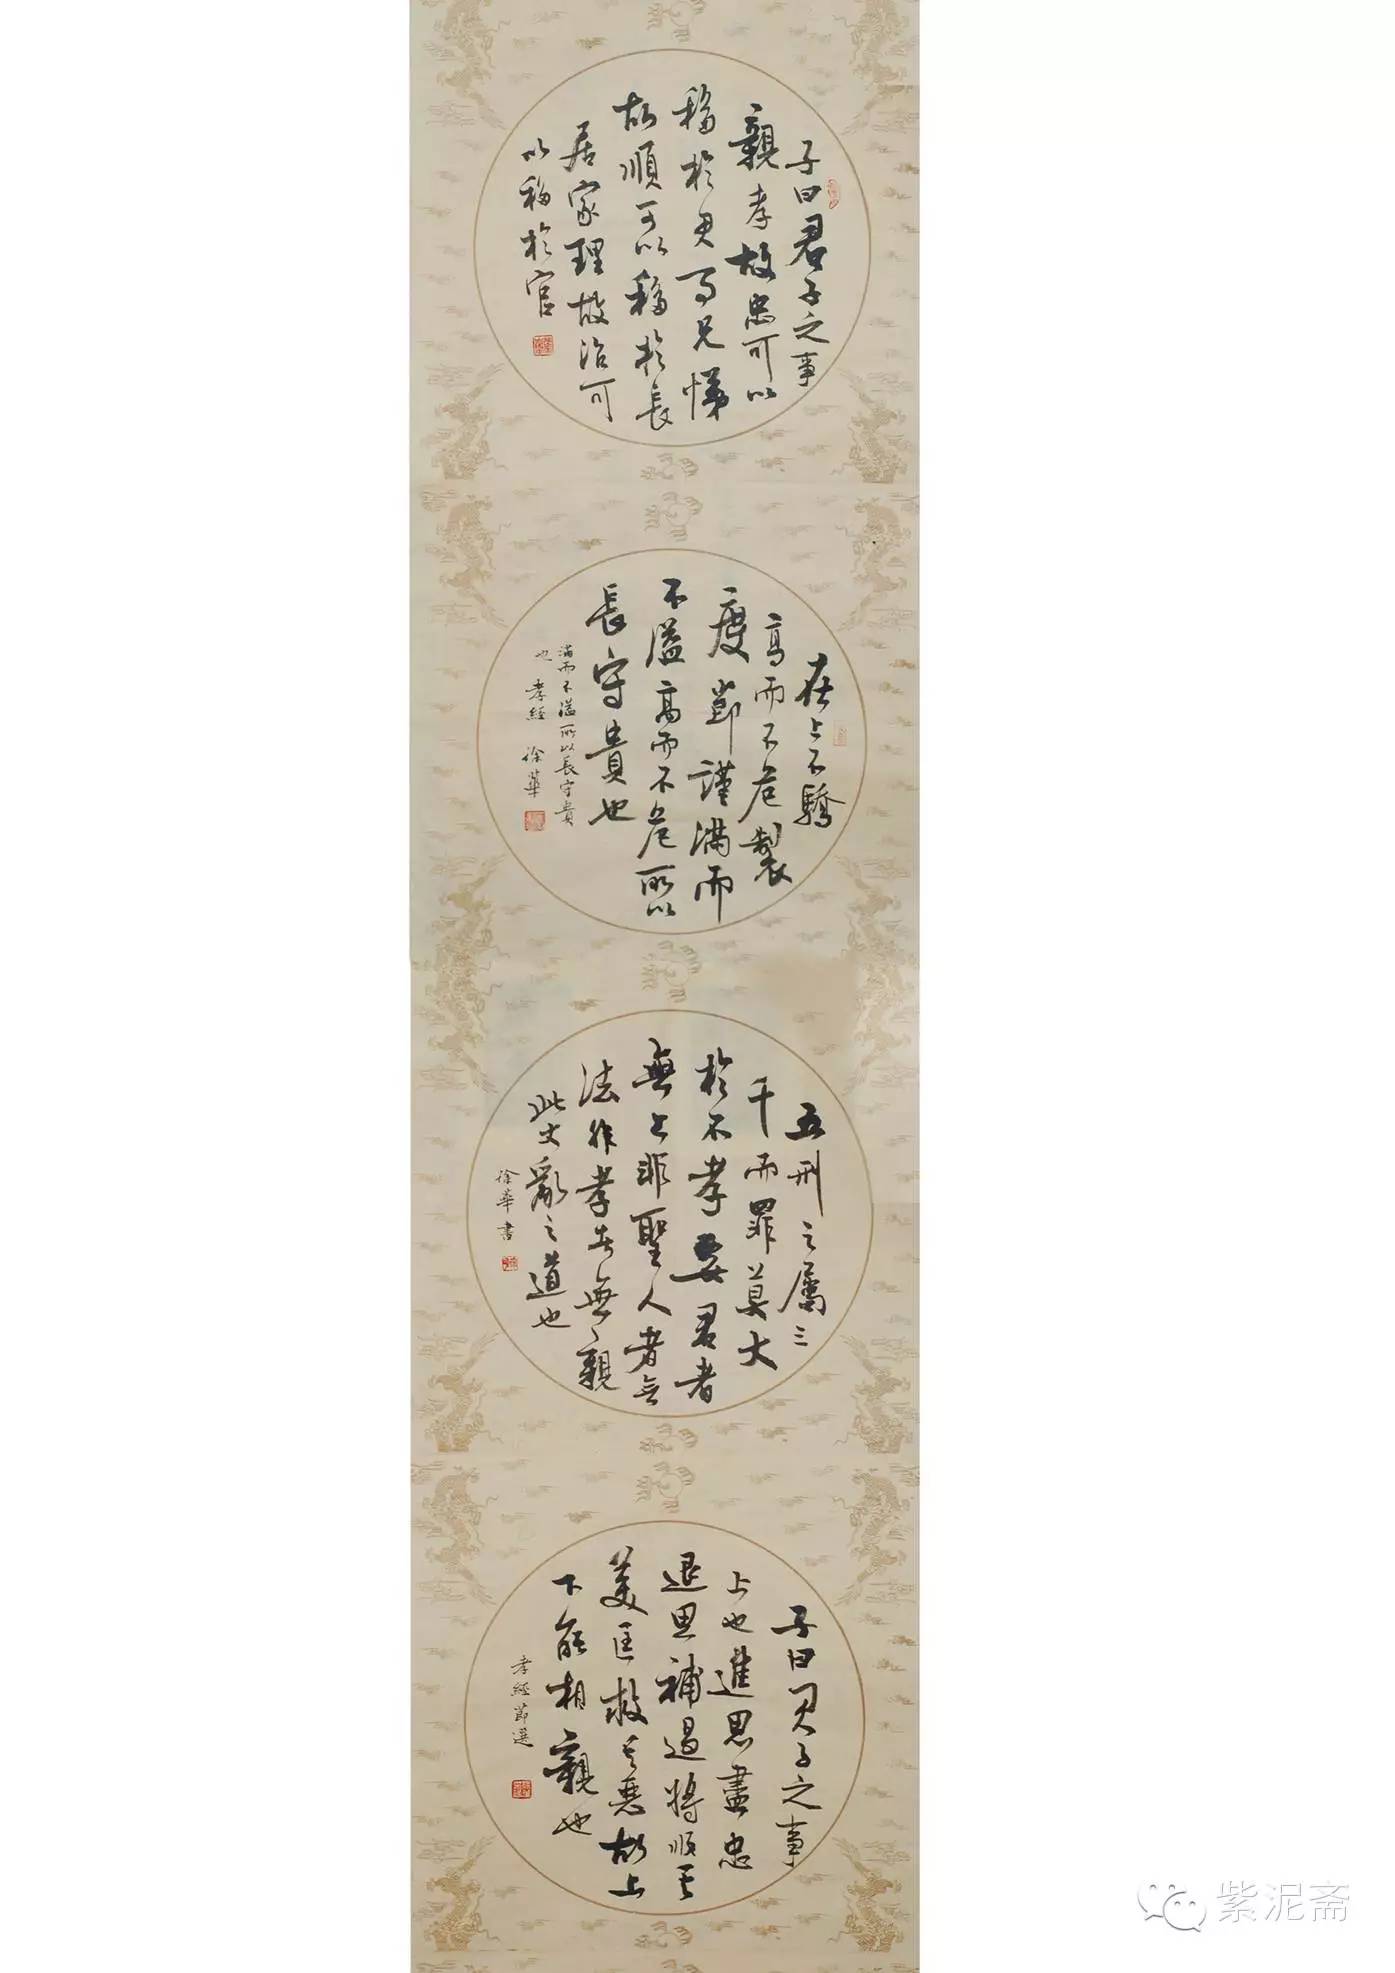 子曰君子之事
親孝故忠可以
移於君事兄悌
故順可以移於長
居家理故治可
以移於官
在上不驕
高而不危製
度節謹滿而
不溢高而不危所以
長守貴也
滿而不溢所以長守貴
也 孝經 徐華
五刑之屬三
千而罪莫大
於不孝要君者
無上非聖人者無
法非孝者無親
此大亂之道也
徐華書
子曰君子之事
上也進思盡忠
退思補過將順其
美匡救其惡故上
下能相親也
孝經節選
紫泥斋